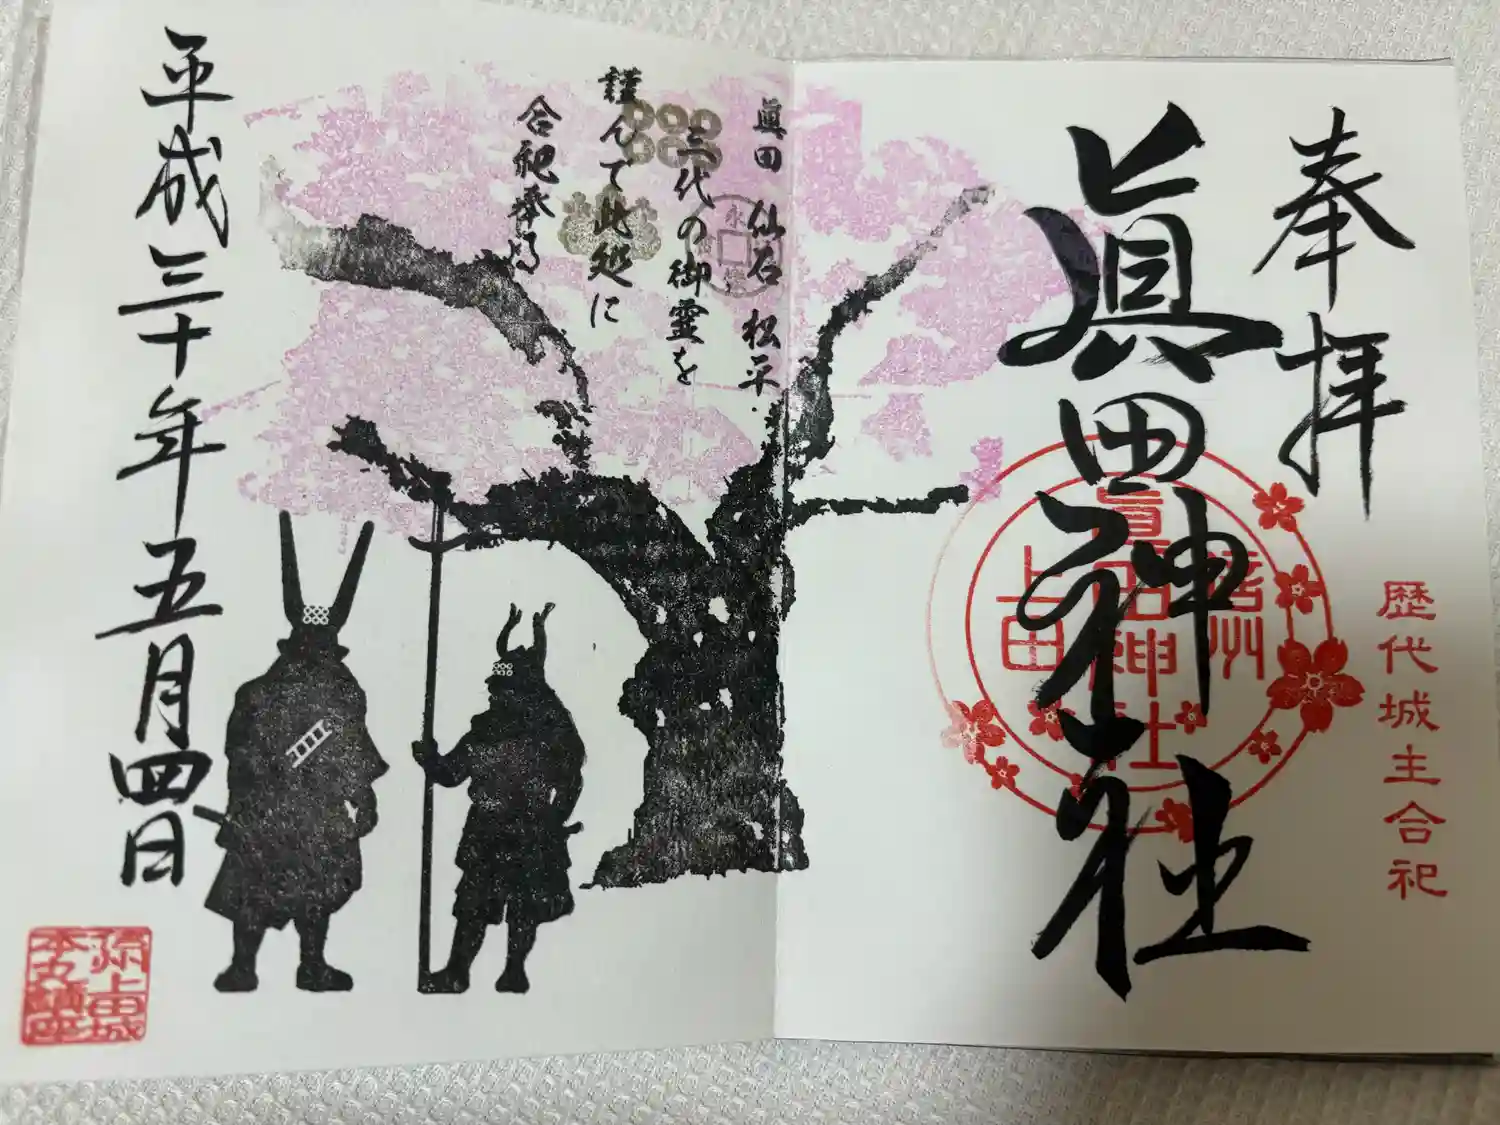 奉拝
眞田神社
歴代城主合祀
信州
上田
眞田神社
眞田 仙石 松平
三代の御霊を
謹んで此処に
合祀奉る
永
平成三十年五月四日